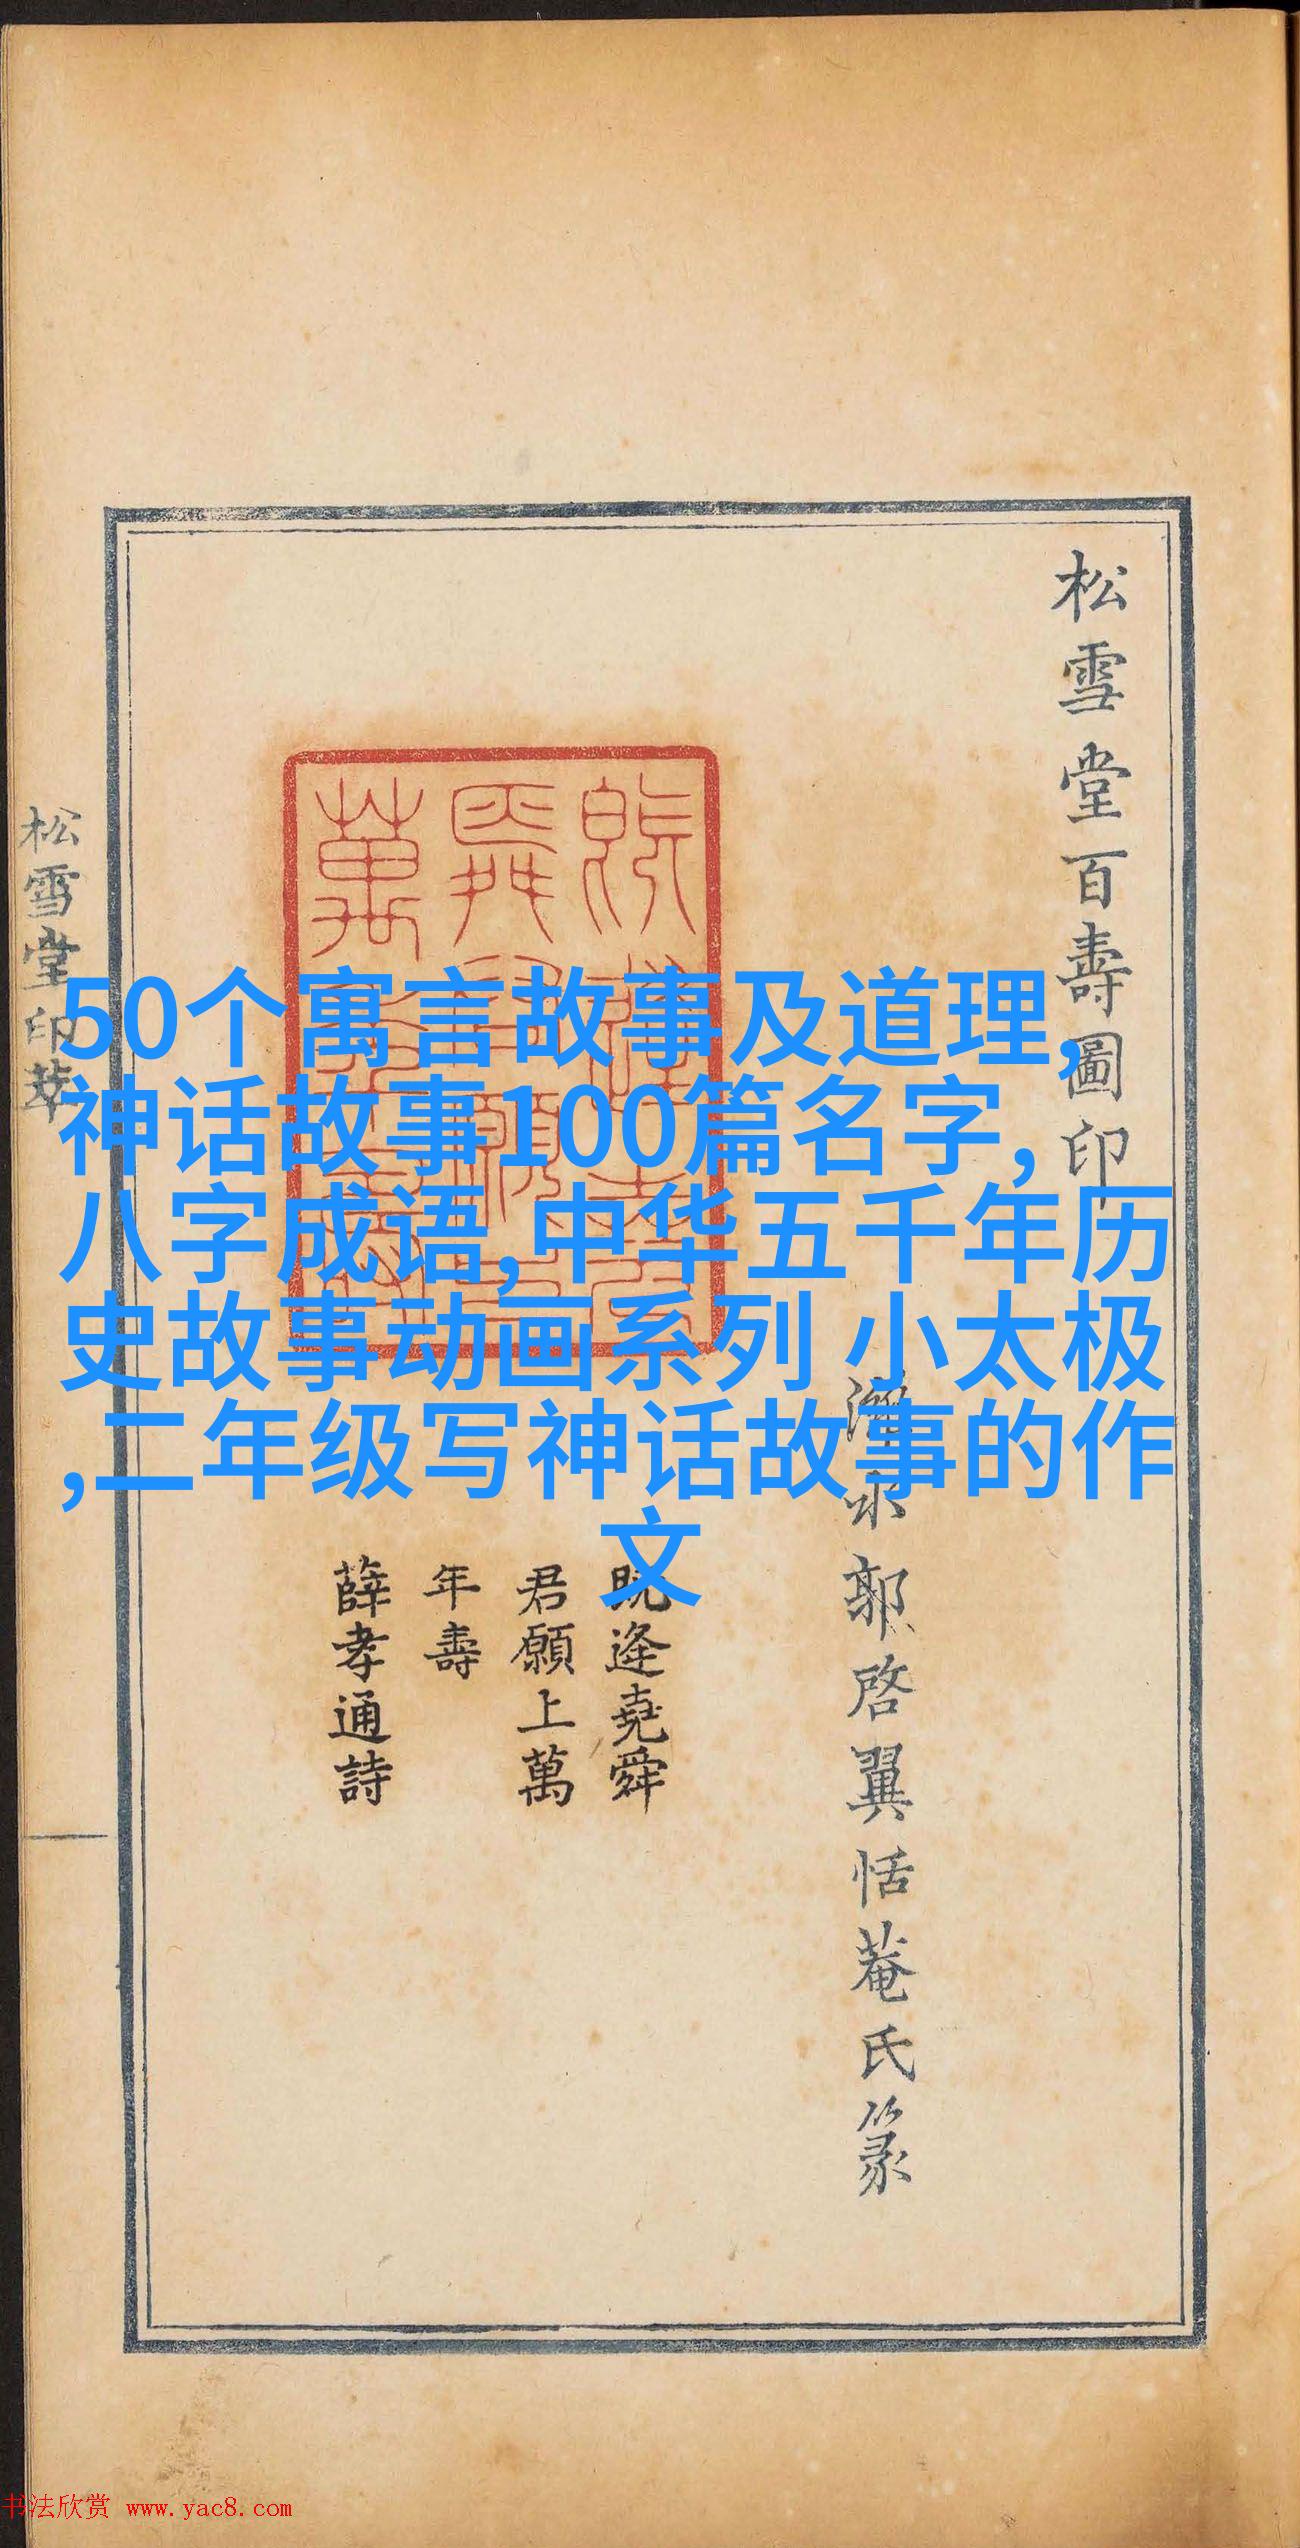 松雪堂百壽圖印
松雪堂印萃
50个寓言故事及道理,
神话故事100篇名字,
八字成语,中华五千年历
史故事动画系列 小太极
,二年级写神话故事的作
文
郭啓翼恬菴氏篆
既逢堯舜
君願上萬
年壽
薛孝通詩
书法欣赏 www.yac8.com